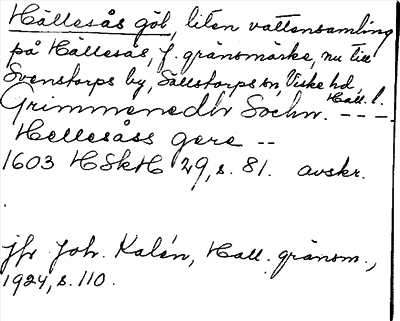 Hällesås göl, liten vattensamling
på Hällesås, f. gränsmärke, nu till
Svenstorps by, Sällstorps sn, Viske hd,
Hall. l.
Grimmenedhr Sochn. – – –
Hellesåss gere – –
1603 HSkH 29, s. 81. avskr.
jfr Joh. Kalén, Hall. gränsm.,
1924, s. 110.